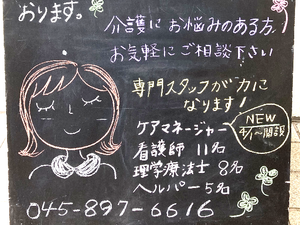 おります。
介護にお悩みのある方!
お気軽にご相談下さい
専門スタッフが力に
なります!
ケアマネージャー
NEW
4/1~開設
看護師 11名
理学療法士 8名
ヘルパー 5名
045-897-6616